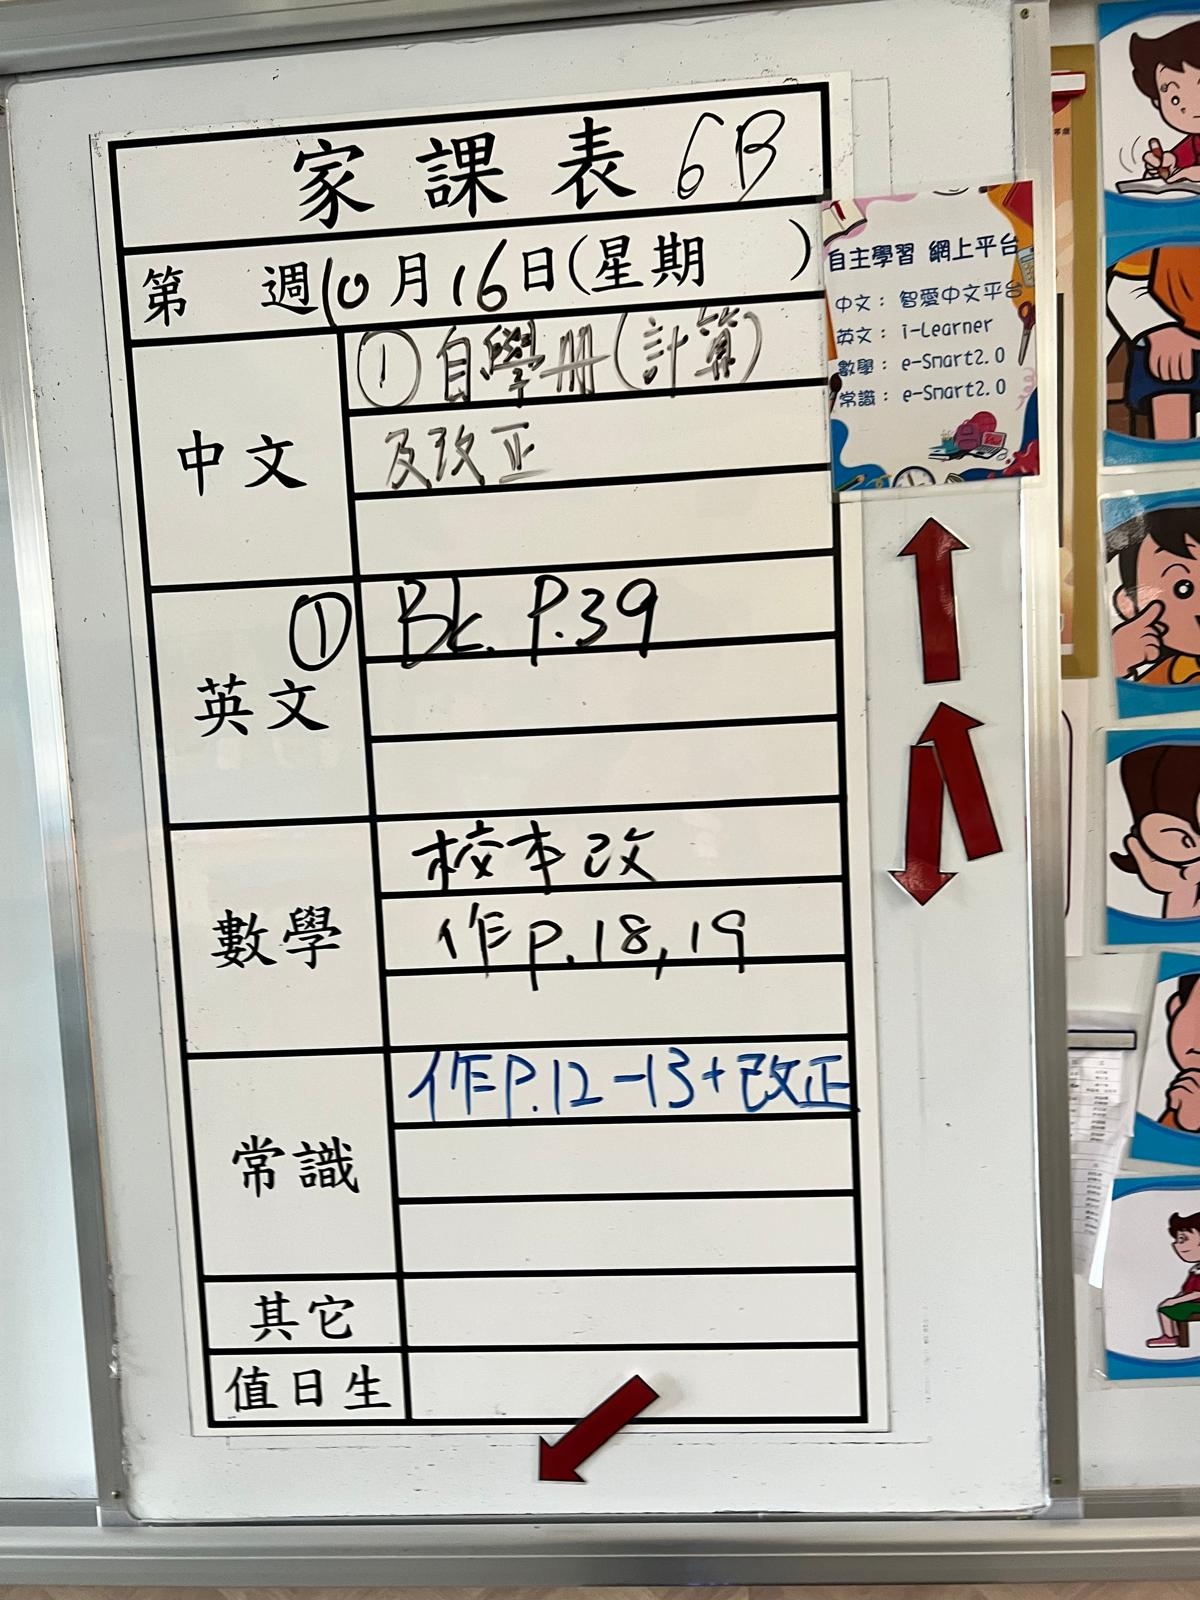 家課表 6B
第 週 10月16日(星期 )
中文
①自學冊(計算)
及改正
英文
① Bk. P.39
數學
校本改
作 p.18,19
常識
作P.12-13+改正
其它
值日生
自主學習 網上平台
中文: 智愛中文平台
英文: i-Learner
數學: e-Smart2.0
常識: e-Smart2.0